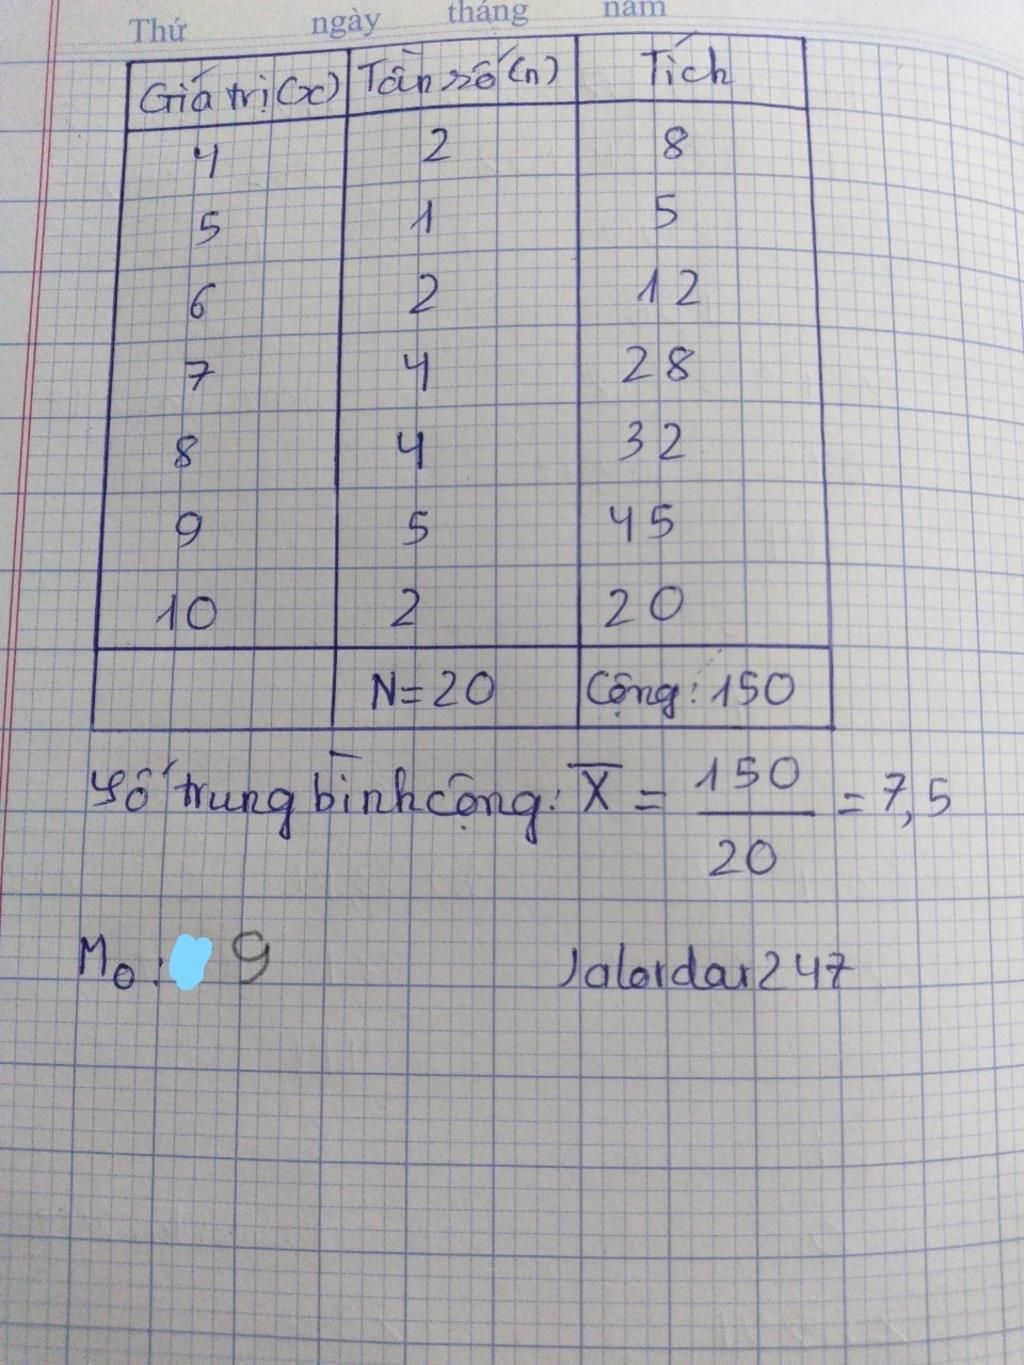 Thứ ngày tháng năm
Giá trị (x) Tần số (n) Tích
4 2 8
5 1 5
6 2 12
7 4 28
8 4 32
9 5 45
10 2 20
N=20 Cộng: 150
Số trung bình cộng: X̄ = 150/20 = 7,5
M₀: 9